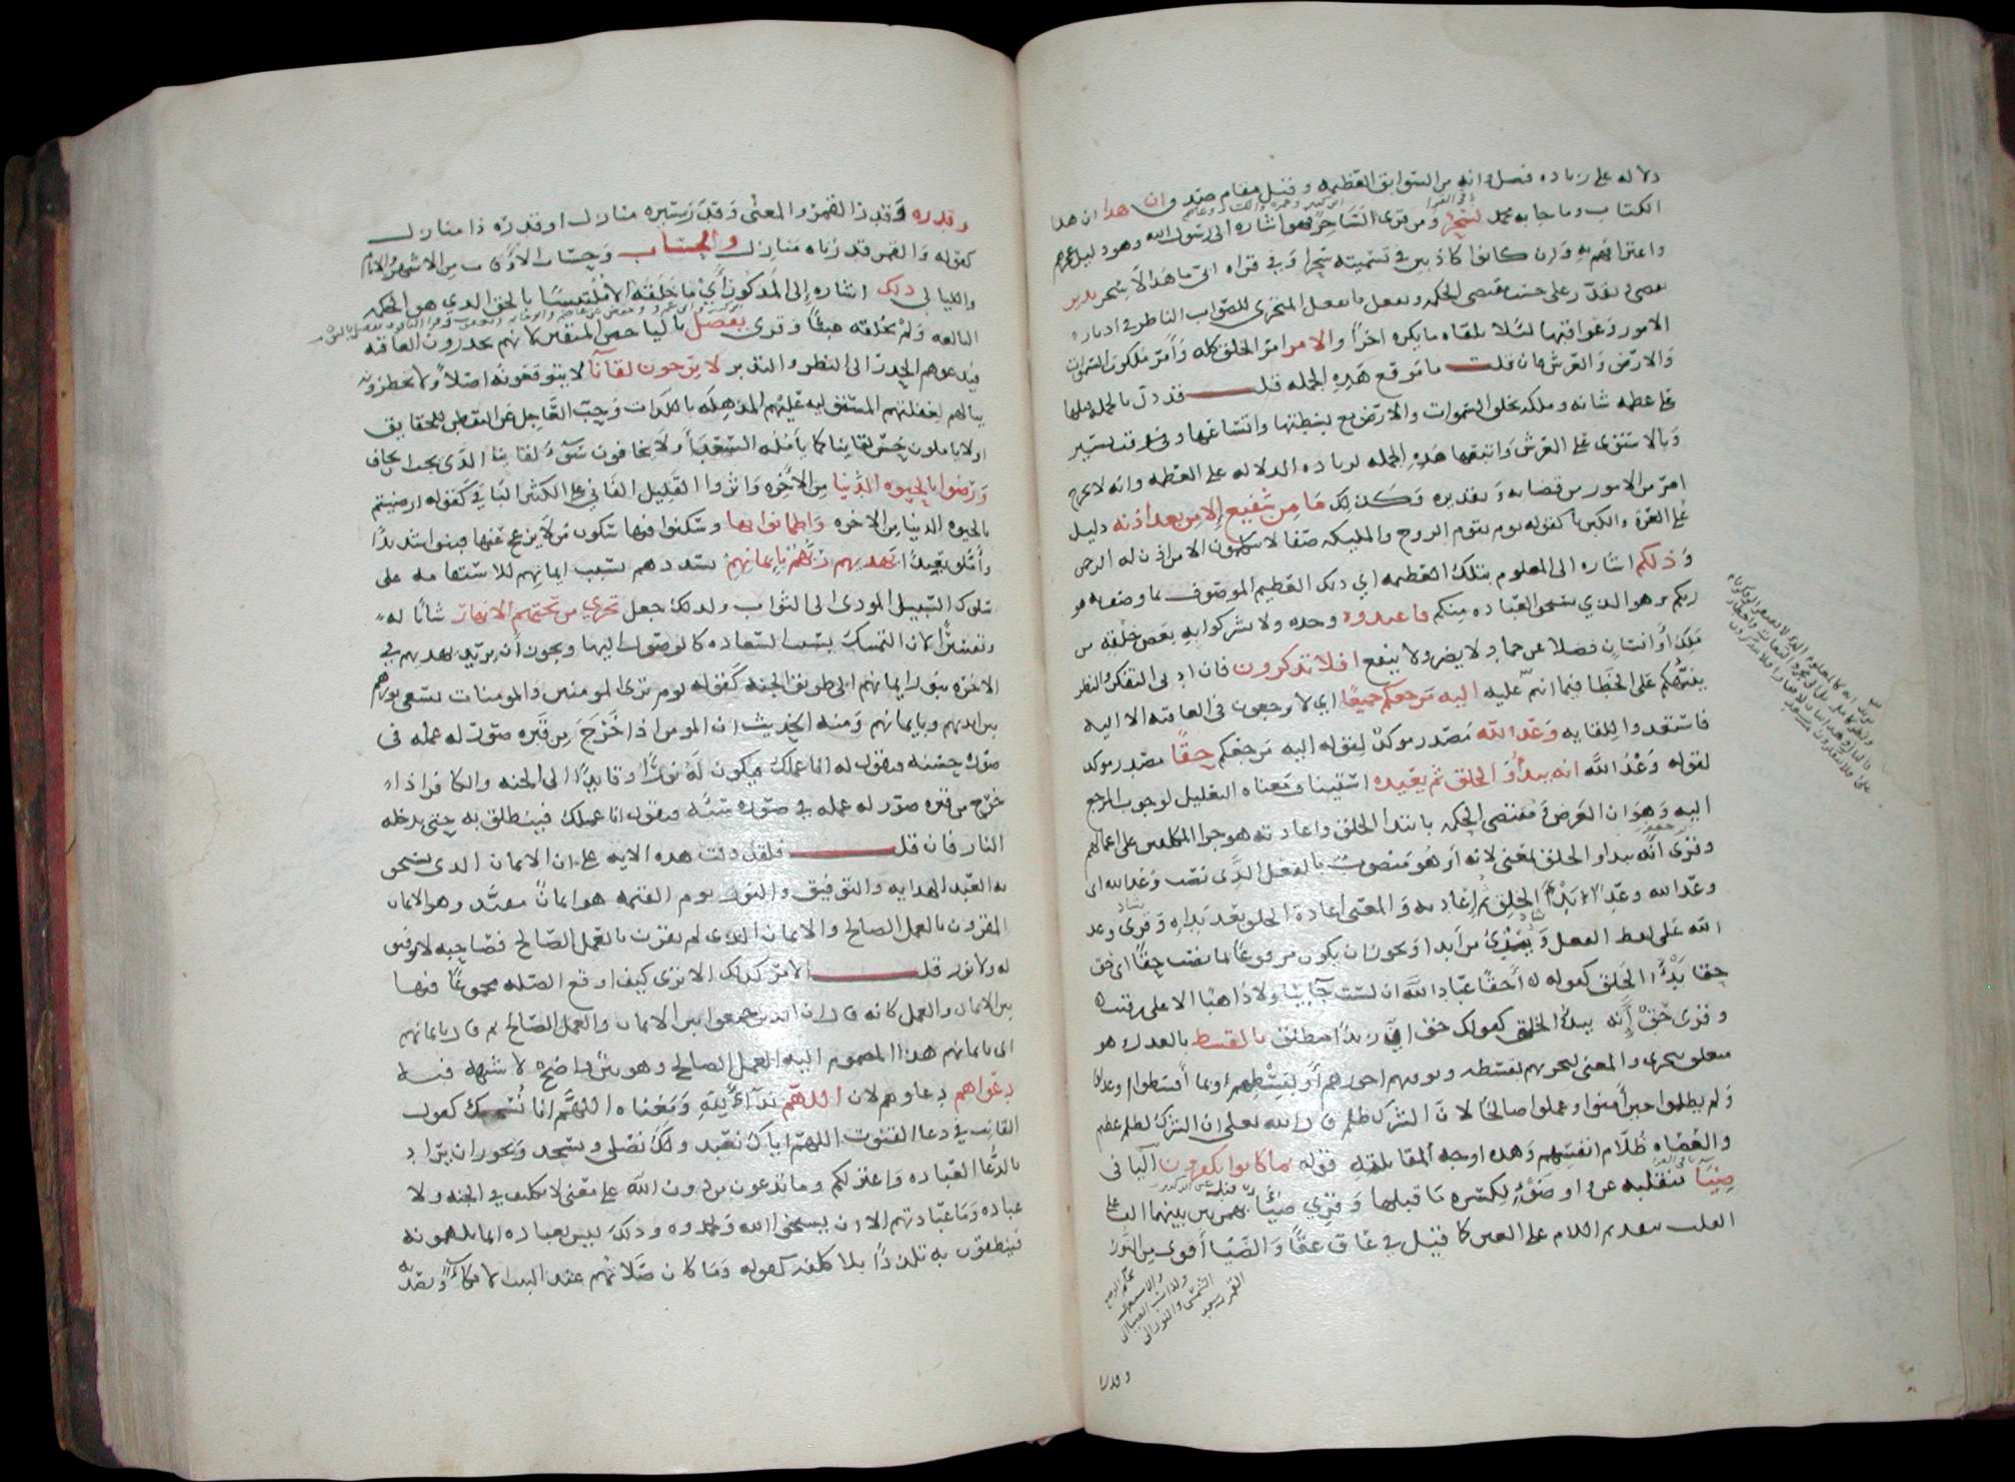 دلاله على زياده فضل وانه من السوابق العظيمه وقيل مقام صدق وان هذا ان هذا
الكتاب وما جا به محمد لسحر ومن قرى لساحر فهو اشاره الى رسول الله وهو دليل عجزهم
واعترافهم به وان كانوا كاذبين في تسميته سحرا وفي قراه ابي ما هذا الا سحر يدبر
يقضي ويقدر على حسب مقتضى الحكمه ويفعل ما يفعل المتحرى للصواب الناظر في ادبار
الامور وعواقبها لئلا يلقاه ما يكره اخرا والامر امر الخلق كله وامر ملكوت السموات
والارض والعرش فان قلت ما موقع هذه الجمله قلت قد دل بالجمله قبلها
على عظمه شانه وملكه بخلق السموات والارض مع بسطتها واتساعها وفي وقت يسير
وبالاستوى على العرش واتبعها هذه الجمله لزياده الدلاله على العظمه وانه لا يخرج
امر من الامور من قضايه وتقديره وكذلك ما من شفيع الا من بعد اذنه دليل
على العزة والكبريا كقوله يوم يقوم الروح والمليكه صفا لا يتكلمون الا من اذن له الرحمن
وذلكم اشاره الى المعلوم بتلك العظمه اي ذلك العظيم الموصوف بما وصف به هو
ربكم وهو الذي يستحق العباده منكم فاعبدوه وحده ولا تشركوا به بعض خلقه من
ملك او انسان فضلا عن جماد لا يضر ولا ينفع افلا تذكرون فان ادنى التفكر والنظر
ينبهكم على الخطا فيما انتم عليه اليه مرجعكم جميعا اي لا ترجعون في العاقبه الا اليه
فاستعدوا للقايه وعد الله مصدر موكد لقوله اليه مرجعكم حقا مصدر موكد
لقوله وعد الله انه يبدؤ الخلق ثم يعيده استيناف معناه التعليل لوجوب المرجع
اليه وهو ان الغرض ومقتضى الحكمه بابتدا الخلق واعادته هو جزا المكلفين على اعمالهم
وقرى انه يبدا الخلق بمعنى لانه او هو منصوب بالفعل الذي نصب وعد الله اي
وعد الله وعدا بدا الخلق ثم اعادته والمعنى اعادة الخلق بعد بدايه وقرى وعد
الله على لفظ الفعل ويبدئ من ابدا ويجوز ان يكون مرفوعا بما نصب حقا اي حق
حقا بدأ الخلق كقوله احقا عباد الله ان لست جائيا ولا ذاهبا الا على رقيب
وقرى حق انه يبدؤ الخلق كقولك حق ان زيدا منطلق بالقسط بالعدل وهو
متعلق بيجزي والمعنى ليجزيهم بقسطه ويوفيهم اجورهم او بقسطهم وبما اقسطوا وعدلوا
ولم يظلموا حين امنوا وعملوا صالحا لان الشرك ظلم قال الله تعالى ان الشرك لظلم عظيم
والعصاه ظلام انفسهم وهذا اوجه لمقابلة قوله بما كانوا يكفرون اليا في
ضيا منقلبه عن واو ضوء لكسره ما قبلها وقرى ضئاء بهمزتين بينهما الف على
القلب بتقديم اللام على العين كما قيل في عاق عقا والضيا اقوى من النور
وقدره
وقدره وقدر القمر والمعنى وقدر مسيره منازل او قدره ذا منازل
كقوله والقمر قدرناه منازل والحساب وحساب الاوقات من الاشهر والايام
والليالي ذلك اشاره الى المذكور اي ما خلقه الا ملتبسا بالحق الذي هو الحكمه
البالغه ولم يخلقه عبثا وقرى يفصل باليا خص المتقين لانهم يحذرون العاقبه
فيدعوهم الحذر الى النظر والتدبر لا يرجون لقآنا لا يتوقعونه اصلا ولا يخطرونه
ببالهم لغفلتهم المستوليه عليهم المذهله باللذات وحب العاجل عن التفطن للحقايق
او لا ياملون حسن لقاينا كما يامله السعدا او لا يخافون سوء لقاينا الذي يجب ان يخاف
ورضوا بالحيوه الدنيا من الاخره واثروا القليل الفاني على الكثير الباقي كقوله ارضيتم
بالحيوه الدنيا من الاخره واطمانوا بها وسكنوا فيها سكون من لا يزعج عنها فبنوا شديدا
واملوا بعيدا يهديهم ربهم بايمانهم يسددهم بسبب ايمانهم للاستقامه على
سلوك السبيل المودي الى الثواب ولذلك جعل تجري من تحتهم الانهار بيانا له
وتفسيرا لان التمسك بسبب السعاده كالوصول اليها ويجوز ان يريد يهديهم في
الاخره بنور ايمانهم الى طريق الجنه كقوله يوم ترى المومنين والمومنات يسعى نورهم
بين ايديهم وبايمانهم ومنه الحديث ان المومن اذا خرج من قبره صور له عمله في
صورة حسنه فيقول له انا عملك فيكون له نورا وقايدا الى الجنه والكافر اذا
خرج من قبره صور له عمله في صورة سيئه فيقول انا عملك فينطلق به حتى يدخله
النار فان قلت فلقد دلت هذه الايه على ان الايمان الذي يستحق
به العبد الهدايه والتوفيق والنور يوم القيمه هو ايمان مقيد وهو الايمان
المقرون بالعمل الصالح والايمان الذي لم يقرن بالعمل الصالح فصاحبه لا توفيق
له ولا نور قلت الامر كذلك الا ترى كيف اوقع الصله مجموعا فيها
بين الايمان والعمل كانه قال ان الذين جمعوا بين الايمان والعمل الصالح ثم قال بايمانهم
اي بايمانهم هذا المضموم اليه العمل الصالح وهو بين واضح لا شبهه فيه
دعواهم دعاوهم لان اللهم ندآء لله ومعناه اللهم انا نسبحك كقول
القانت في دعا القنوت اللهم اياك نعبد ولك نصلي ونسجد ويجوز ان يراد
بالدعا العباده واعتزلكم وما تدعون من دون الله على معنى لا تكليف في الجنه ولا
عباده وما عبادتهم الا ان يسبحوا الله ويحمدوه وذلك ليس بعباده انما يلهمونه
فينطقون به تلذذا بلا كلفه كقوله وما كان صلاتهم عند البيت الا مكاء وتصديه